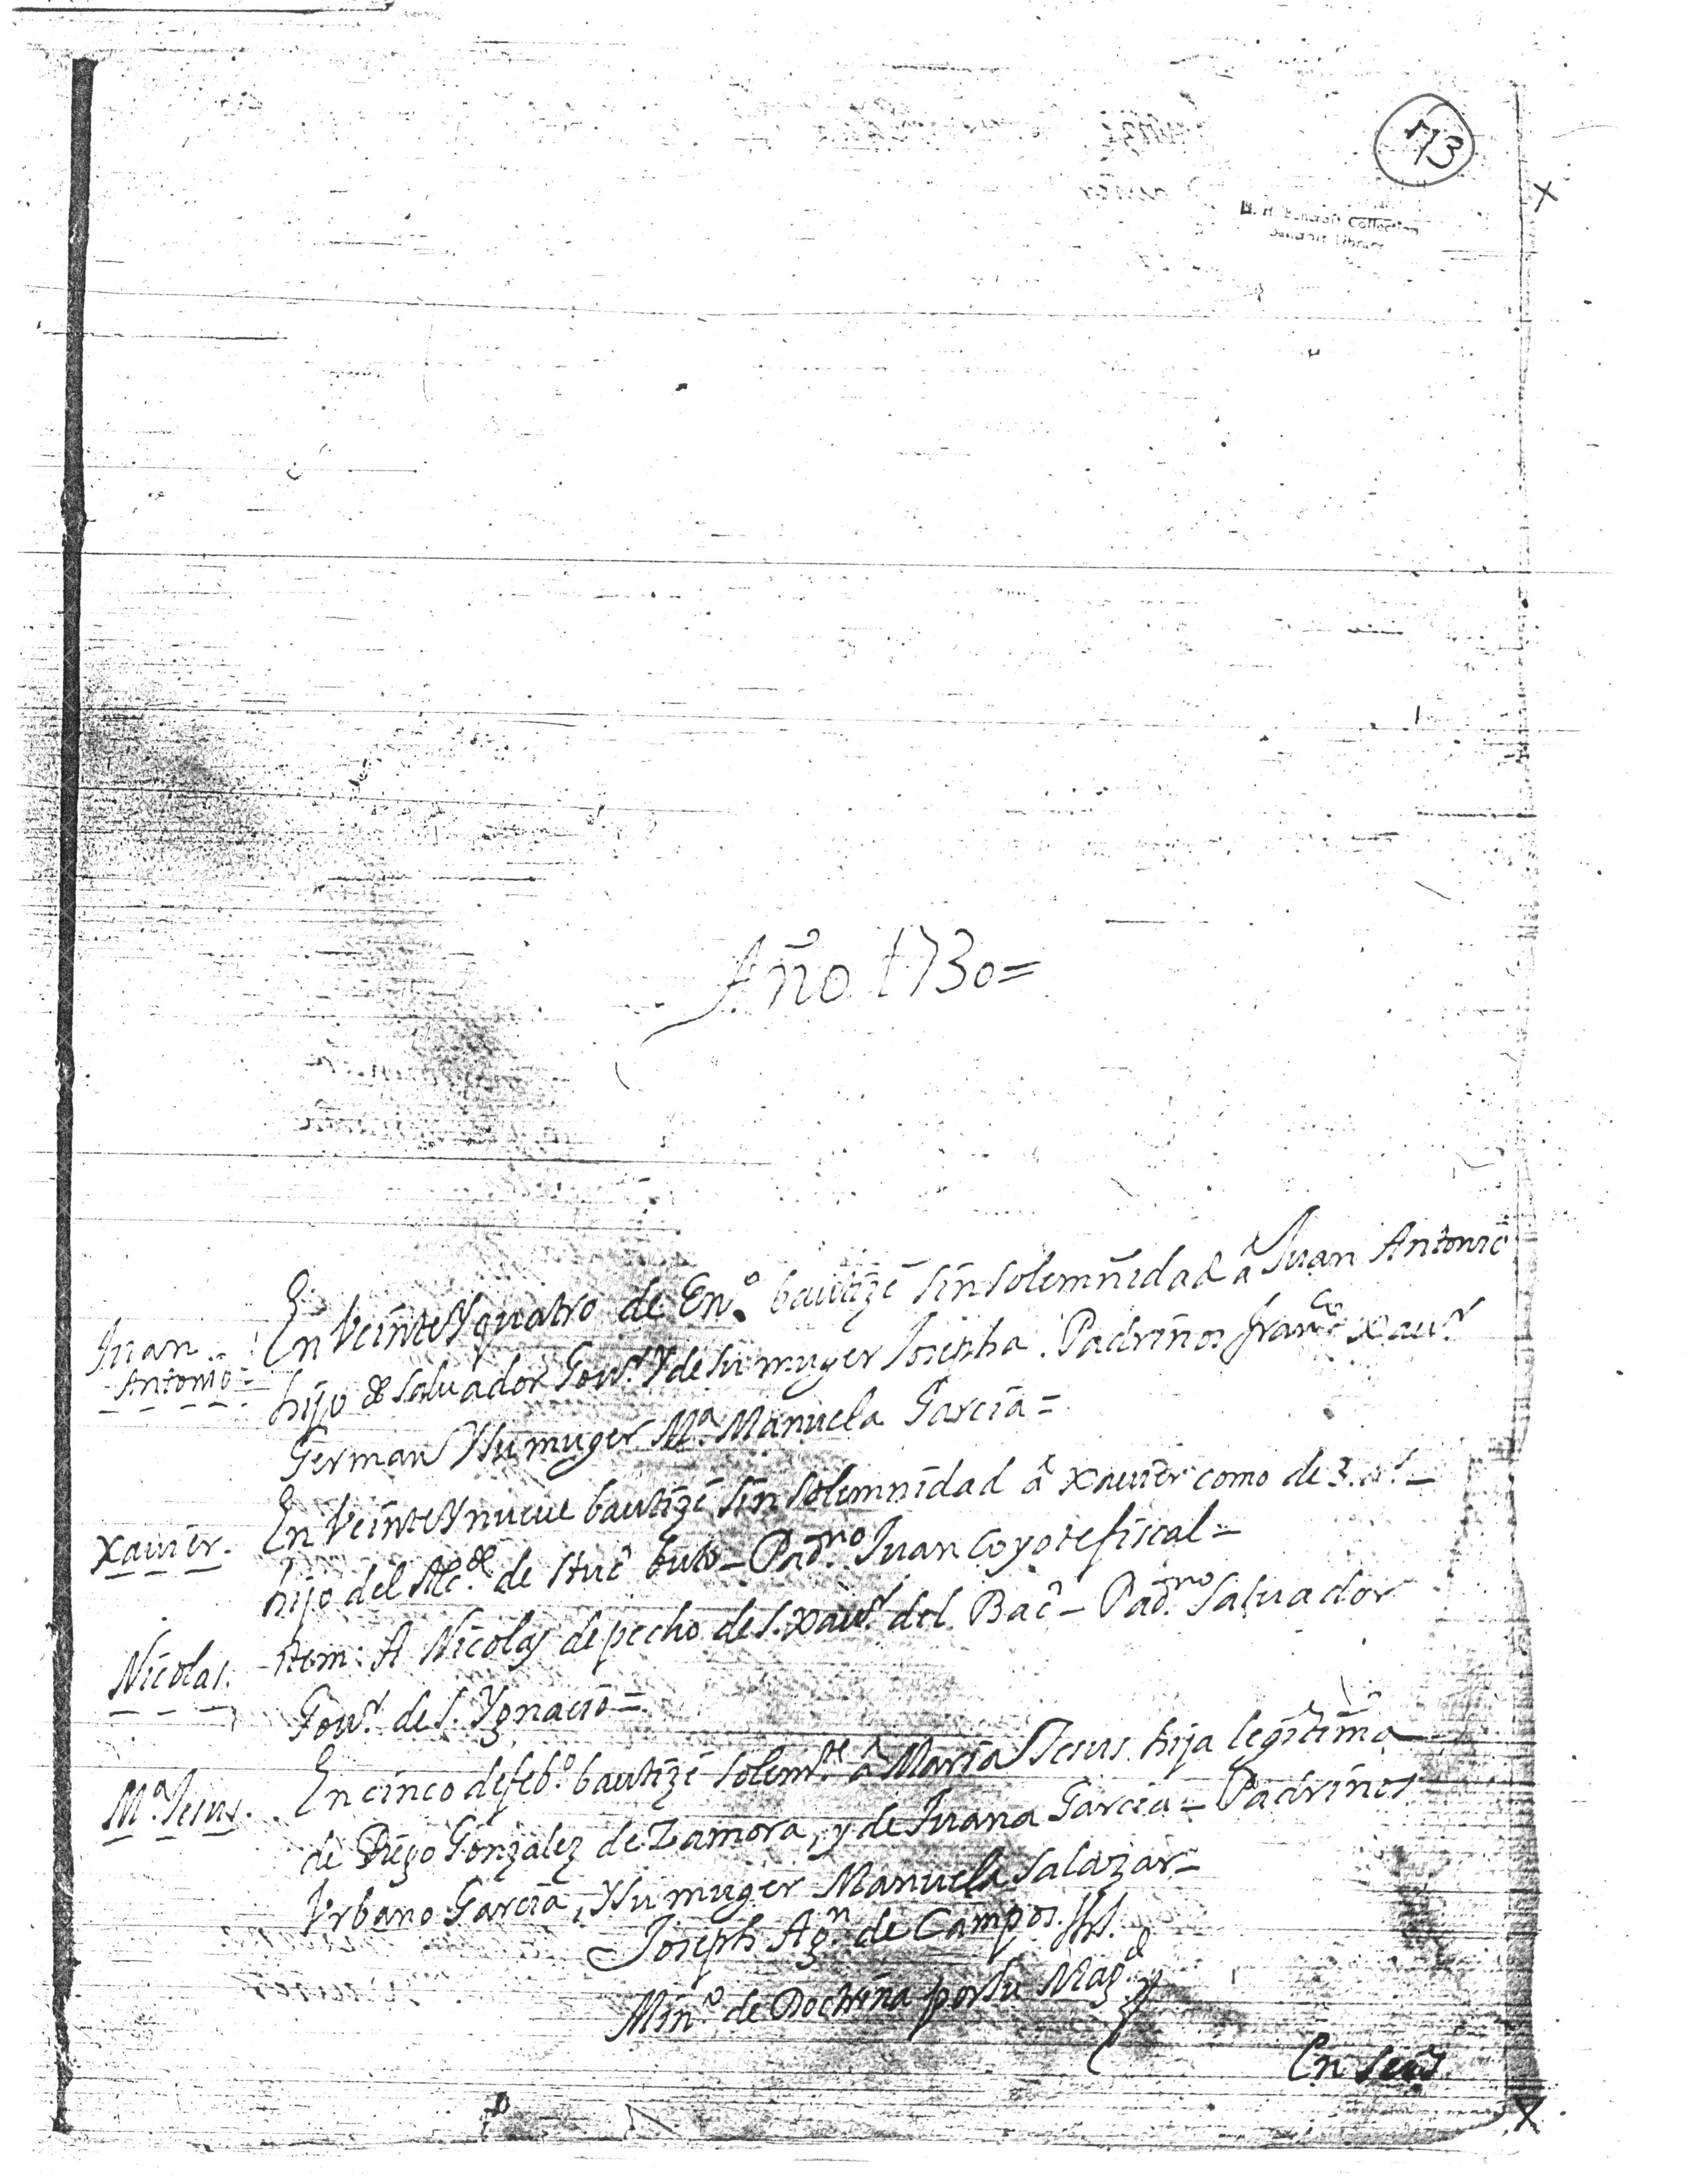 173
H. H. Bancroft Collection
Bancroft Library
Año 1730=
Juan Antonio= En Veinte y quatro de En.o bautizè sin solemnidad â Juan Antonio
hijo de Salvador Gov.r y de su muger Josepha. Padrinos Fran.co Xav.r
German y su muger M.a Manuela Garcia=
Xavier. En Veinte y nueve bautizè sin solemnidad â Xavier como de 3. a.s _
hijo del Alc.de de buto _ Pad.no Juan Coyote fiscal=
Nicolas. Item: A Nicolas de pecho de S. Xav.r del Bac _ Pad.no Salvador
Gov.r de S. Ygnacio=
M.a Jesus. En cinco de feb.o bautizè solem.te â Maria Jesus hija legitima
de Diego Gonzalez de Zamora, y de Juana Garcia _ Padrinos
Urbano Garcia, y su muger Manuela Salazar _
Joseph Ag.n de Campos. JHS.
Min.o de Doctrina por su Mag.d
En